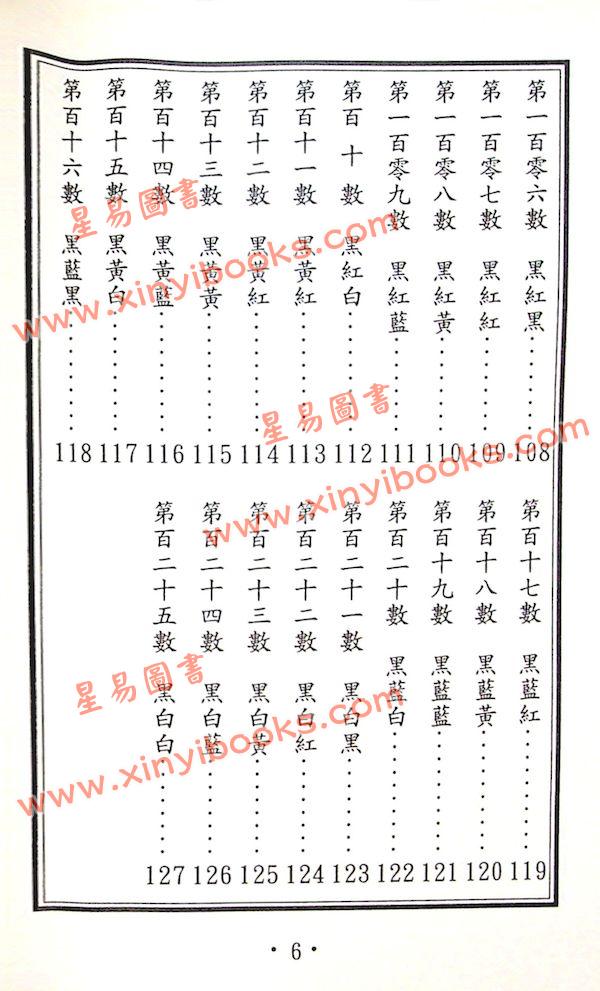 第一百零六數 黑紅黑‥‥‥108
第一百零七數 黑紅紅‥‥‥109
第一百零八數 黑紅黃‥‥‥110
第一百零九數 黑紅藍‥‥‥111
第百十數 黑紅白‥‥‥112
第百十一數 黑黃紅‥‥‥113
第百十二數 黑黃紅‥‥‥114
第百十三數 黑黃黃‥‥‥115
第百十四數 黑黃藍‥‥‥116
第百十五數 黑黃白‥‥‥117
第百十六數 黑藍黑‥‥‥118
第百十七數 黑藍紅‥‥‥119
第百十八數 黑藍黃‥‥‥120
第百十九數 黑藍藍‥‥‥121
第百二十數 黑藍白‥‥‥122
第百二十一數 黑白黑‥‥‥123
第百二十二數 黑白紅‥‥‥124
第百二十三數 黑白黃‥‥‥125
第百二十四數 黑白藍‥‥‥126
第百二十五數 黑白白‥‥‥127
·6·
星易圖書
www.xinyibooks.com
星易圖書
www.xinyibooks.com
星易圖書
www.xinyibooks.com